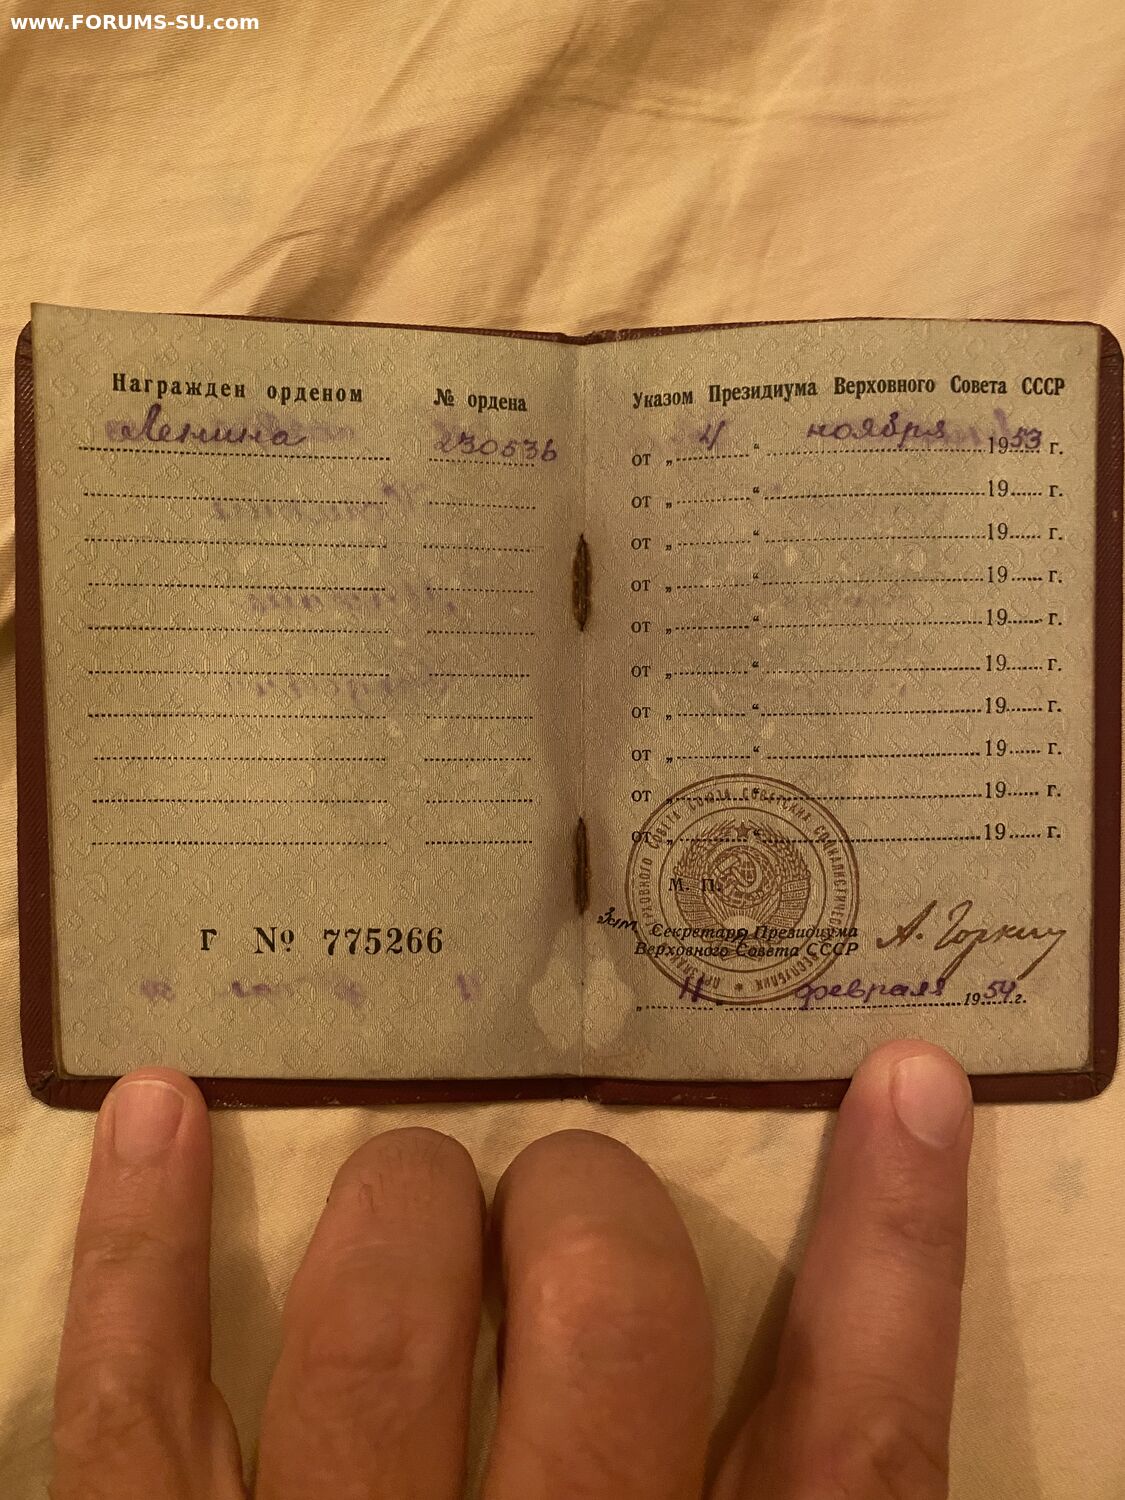 www.FORUMS-SU.com
Награжден орденом № ордена
Ленина 230536
Г № 775266
Указом Президиума Верховного Совета СССР
от „ 4 “ ноября 1953 г.
от „ “ 19 г.
от „ “ 19 г.
от „ “ 19 г.
от „ “ 19 г.
от „ “ 19 г.
от „ “ 19 г.
от „ “ 19 г.
от „ “ 19 г.
от „ “ 19 г.
М. П.
Зам. Секретаря Президиума
Верховного Совета СССР
А. Горкин
„ 11 “ февраля 1954 г.